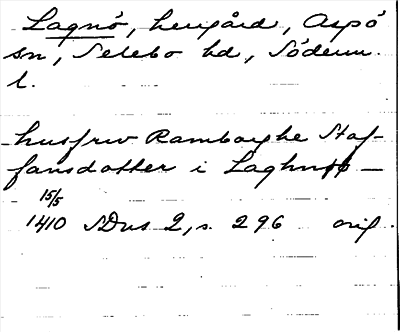 Lagnö, herrgård, Aspö
sn, Selebo hd, Söderm.
l.
husfrw Ramborghe Staf-
fansdotter i Laghnø —
15/5
1410 SDns 2, s. 296 orig.